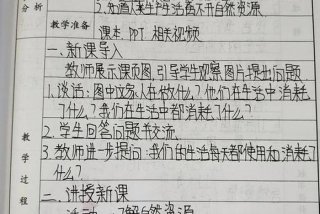 分析
2.知道人类生产生活离不开自然资源
教学准备
课本 PPT 相关视频
一、新课导入
教师展示课页图,引导学生观察图片提出问题
1.谈话:图中这家人在做什么?他们在生活中消耗
了什么?我们在生活中都消耗了什么?
2.学生回答问题并交流。
3.教师进一步提问:我们的生活每天都使用和消耗了
什么?
教学过程
二、讲授新课
活动一:了解自然资源